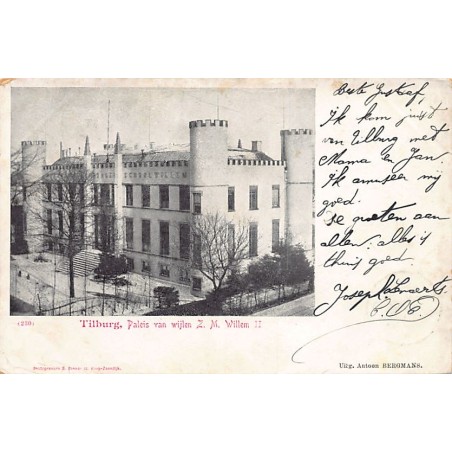 Beste Gustaf,
Ik kom juist
van Tilburg met
Mama en Jan.
Ik amuseer mij
goed.
De groeten aan
allen; alles is
thuis goed.
Joseph
(239)
Tilburg, Paleis van wijlen Z. M. Willem II
Uitg. Antoon BERGMANS.